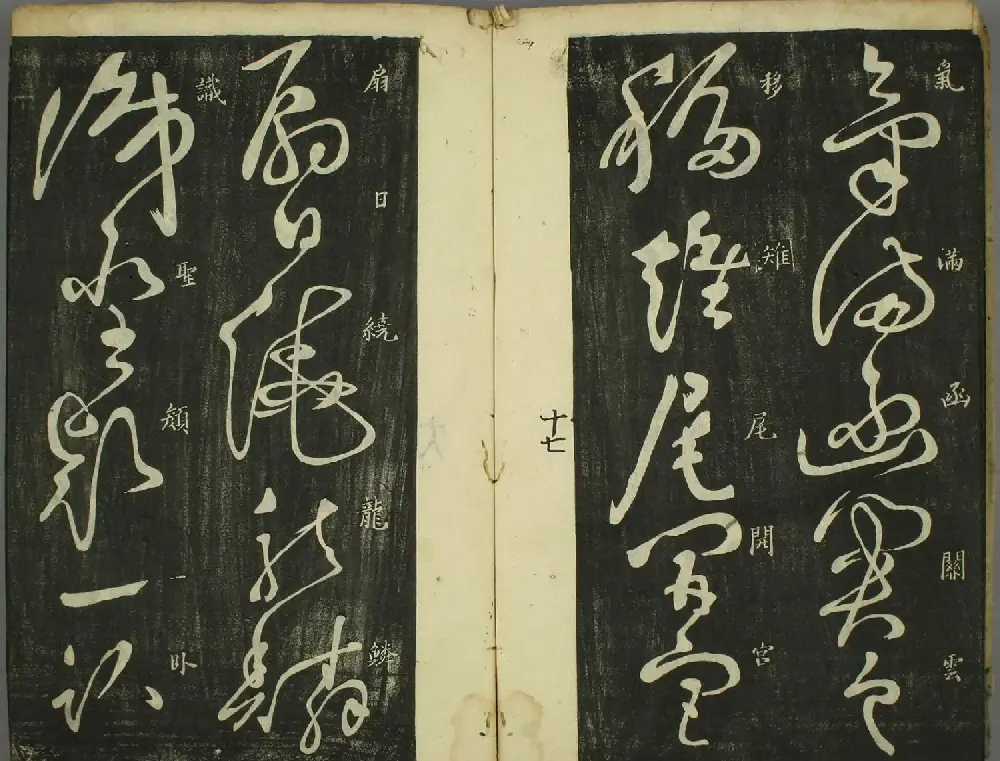 氣滿函關雲
移雉尾開宮
十七
扇日繞龍鱗
識聖顏一卧